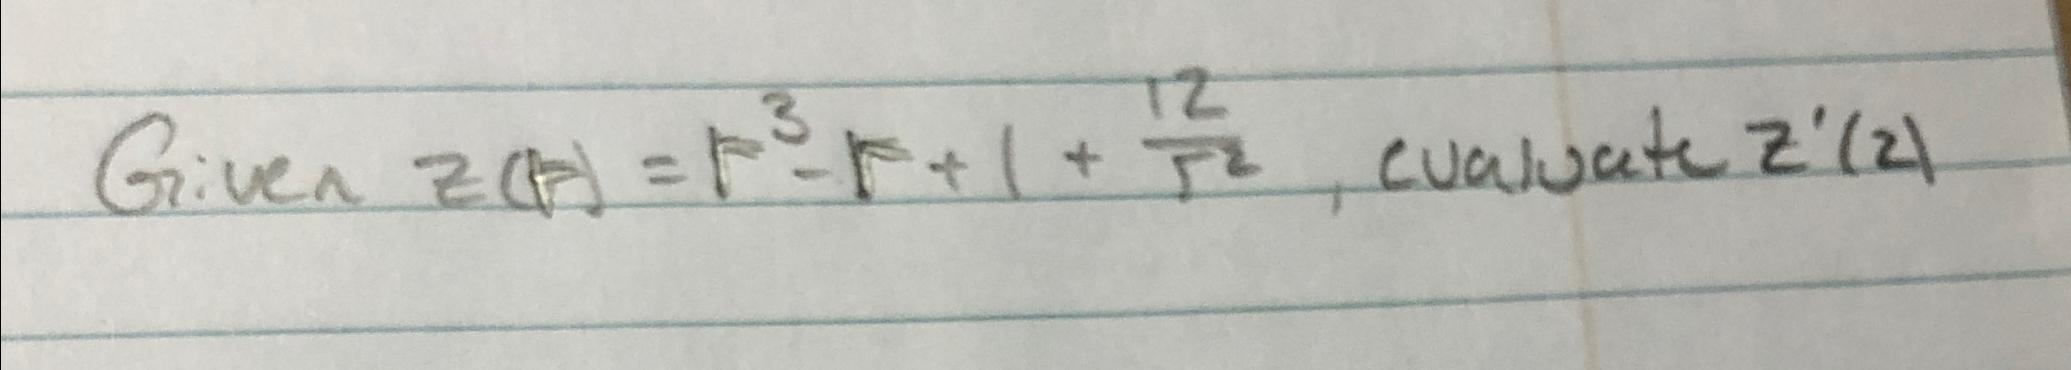 Given z(r) = r³ - r + 1 + 12/r², evaluate z'(2)